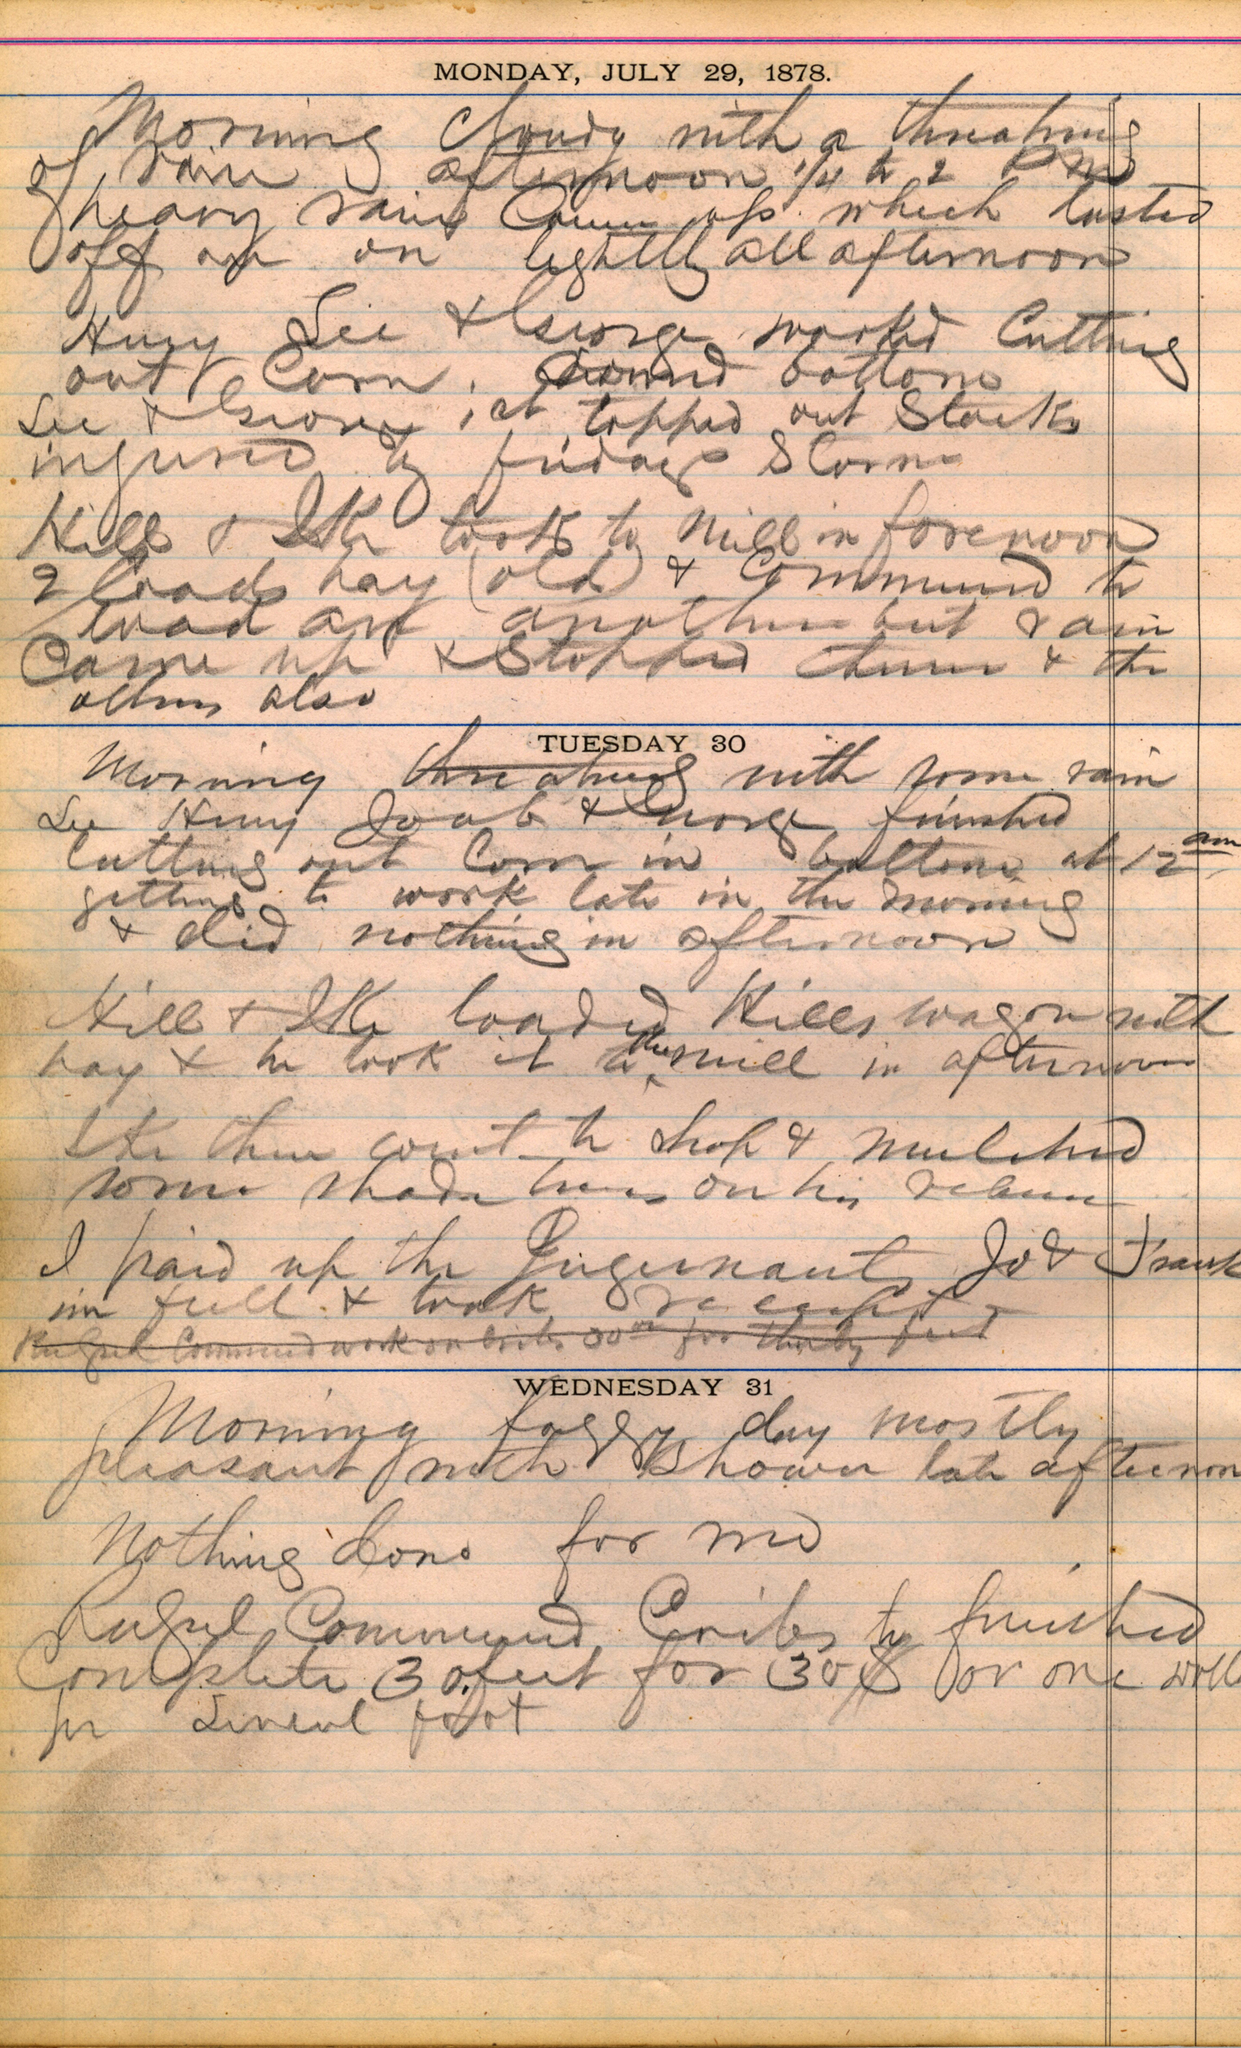 MONDAY, JULY 29, 1878.
Morning Cloudy with a threatning
of rain afternoon 1/4 to 2 P M
heavy rain Came up which lasted
off an on lightly all afternoon
Henry Lee & George worked Cutting
out Corn. bottom
Lee & George 1st topped out Stacks
injured by fridays Storm
Hill & Ike took to Mill in forenoon
2 loads hay (old) & Commened to
load an another but rain
Came up & Stopped them & the
others also
TUESDAY 30
Morning threatning with some rain
Lee Henry Joab & George finished
Cutting out Corn in bottom at 12 am
getting to work late in the morning
& did nothing in afternoon
Hill & Ike loaded Hills wagon with
hay & he took it to the mill in afternoon
Ike then went to shop & mulched
some shade trees on his return
I paid up the Jo & Frank
in full & took receipt
Rufel Commened work on Cribs 30 for feet
WEDNESDAY 31
Morning foggy day mostly
pleasant with shower late afternoon
Nothing done for me
Rufel Commened Cribs to finished
Complete 30 feet for 30 $ or one doll
pr Lineal foot